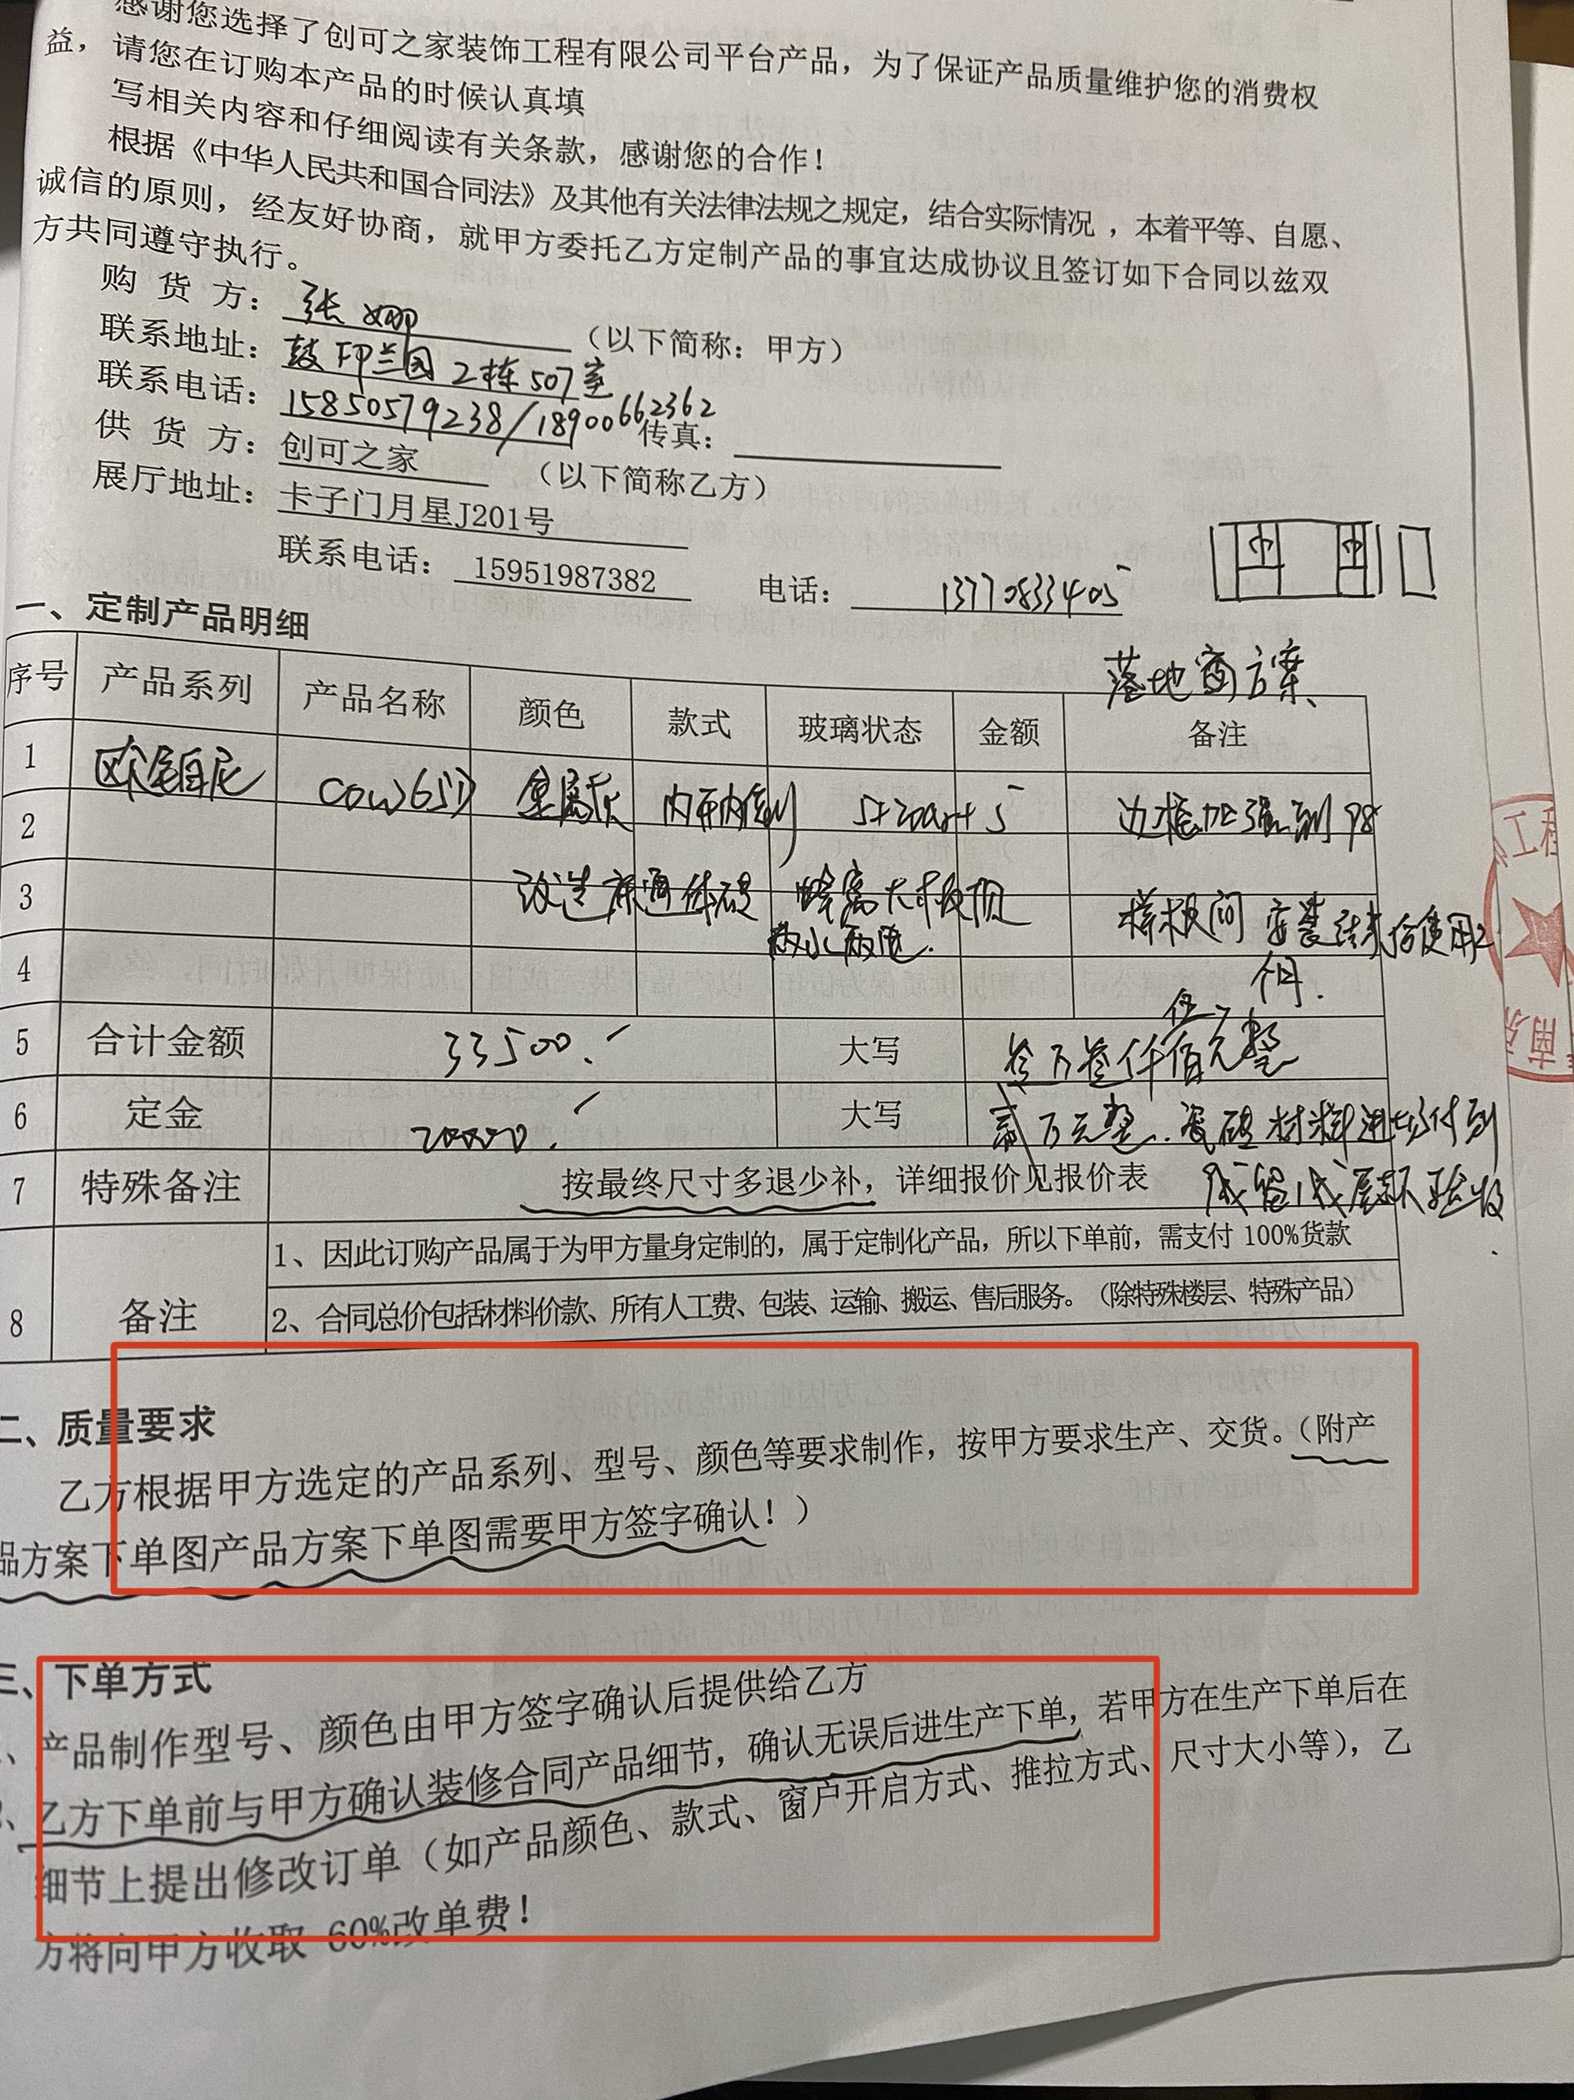 感谢您选择了创可之家装饰工程有限公司平台产品，为了保证产品质量维护您的消费权
益，请您在订购本产品的时候认真填
写相关内容和仔细阅读有关条款，感谢您的合作！
根据《中华人民共和国合同法》及其他有关法律法规之规定，结合实际情况，本着平等、自愿、
诚信的原则，经友好协商，就甲方委托乙方定制产品的事宜达成协议且签订如下合同以兹双
方共同遵守执行。
购货方：张娜（以下简称：甲方）
联系地址：鼓印兰园2栋507室
联系电话：15850579238/18900662362 传真：
供货方：创可之家（以下简称乙方）
展厅地址：卡子门月星J201号
联系电话：15951987382 电话：13770833405
中 中
一、定制产品明细
落地窗方案、
序号 产品系列 产品名称 颜色 款式 玻璃状态 金额 备注
1
2
欧洛自尼 COW65D 金属灰 内开内倒 5+20Ar+5 边框加强到98
3 改造 通体砖 蜂窝大板顶 样板间 安装结束后使用2
两小两通. 个月.
4
5 合计金额 33500. 大写 叁万叁仟伍佰元整
6 定金 20000. 大写 贰万元整. 瓷砖材料进场付到
7 特殊备注 按最终尺寸多退少补，详细报价见报价表
9成留1成尾款验收
8 备注
1、因此订购产品属于为甲方量身定制的，属于定制化产品，所以下单前，需支付 100%货款
2、合同总价包括材料价款、所有人工费、包装、运输、搬运、售后服务。（除特殊楼层、特殊产品）
工程
南京
二、质量要求
乙方根据甲方选定的产品系列、型号、颜色等要求制作，按甲方要求生产、交货。（附产
品方案下单图产品方案下单图需要甲方签字确认！）
三、下单方式
、产品制作型号、颜色由甲方签字确认后提供给乙方
、乙方下单前与甲方确认装修合同产品细节，确认无误后进生产下单，若甲方在生产下单后在
细节上提出修改订单（如产品颜色、款式、窗户开启方式、推拉方式、尺寸大小等），乙
方将向甲方收取 60%改单费！